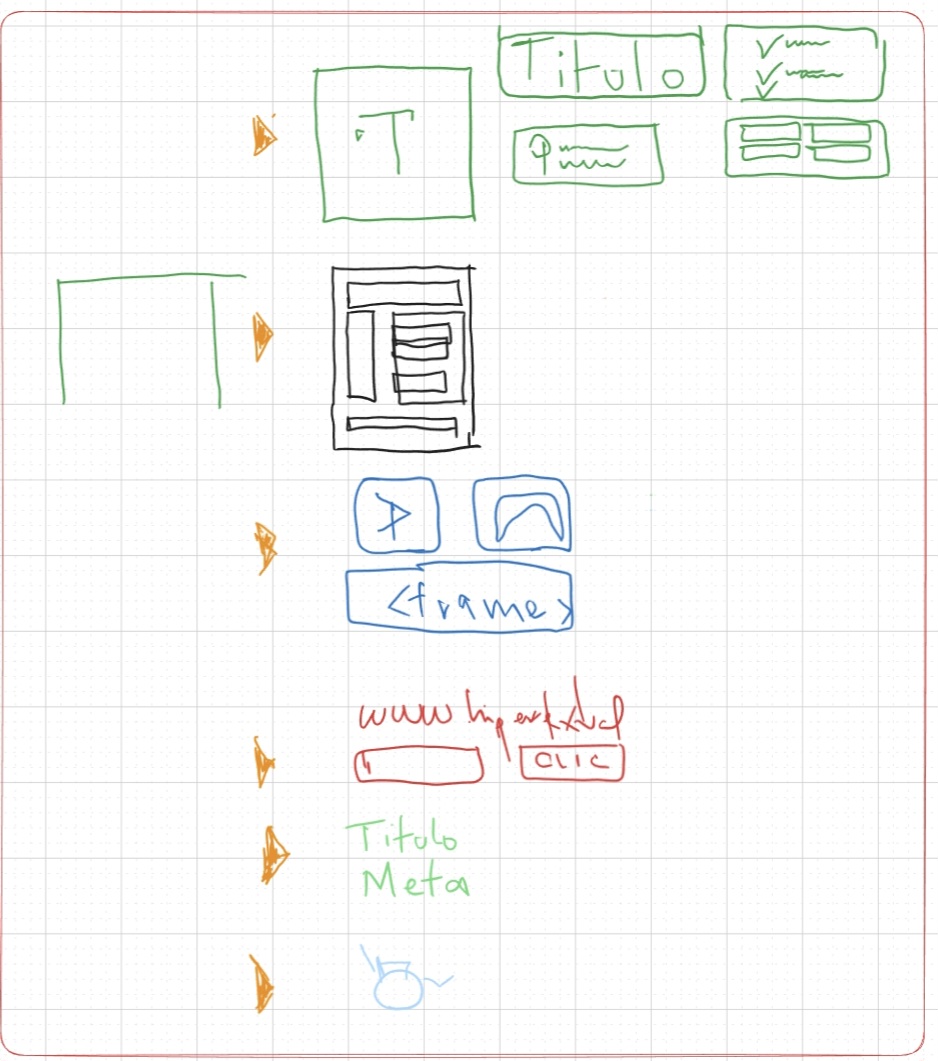 T
Titulo
<frame>
www hipertextual
CLIC
Titulo
Meta